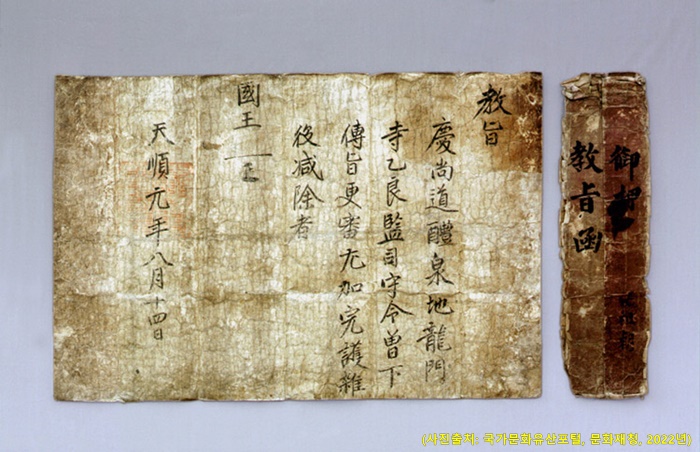 教旨
慶尚道醴泉地龍門
寺乙良監司守令曾下
傳旨更審尤加完護雜
役減除者
國王
天順元年八月十四日
御押
教旨函
(사진출처: 국가문화유산포털, 문화재청, 2022년)